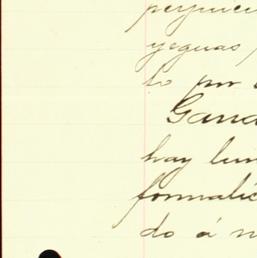 perjuici
yeguas
to por
Gana
hay lin
formalic
do á n